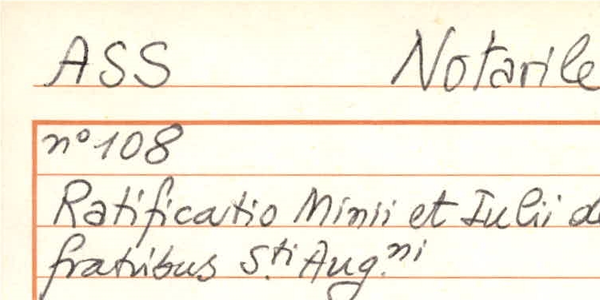 ASS Notarile
n° 108
Ratificatio Minii et Iulii de
fratribus S.ti Aug.ni